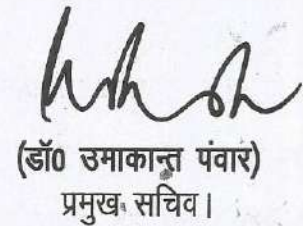 (डॉ0 उमाकान्त पंवार)
प्रमुख सचिव।